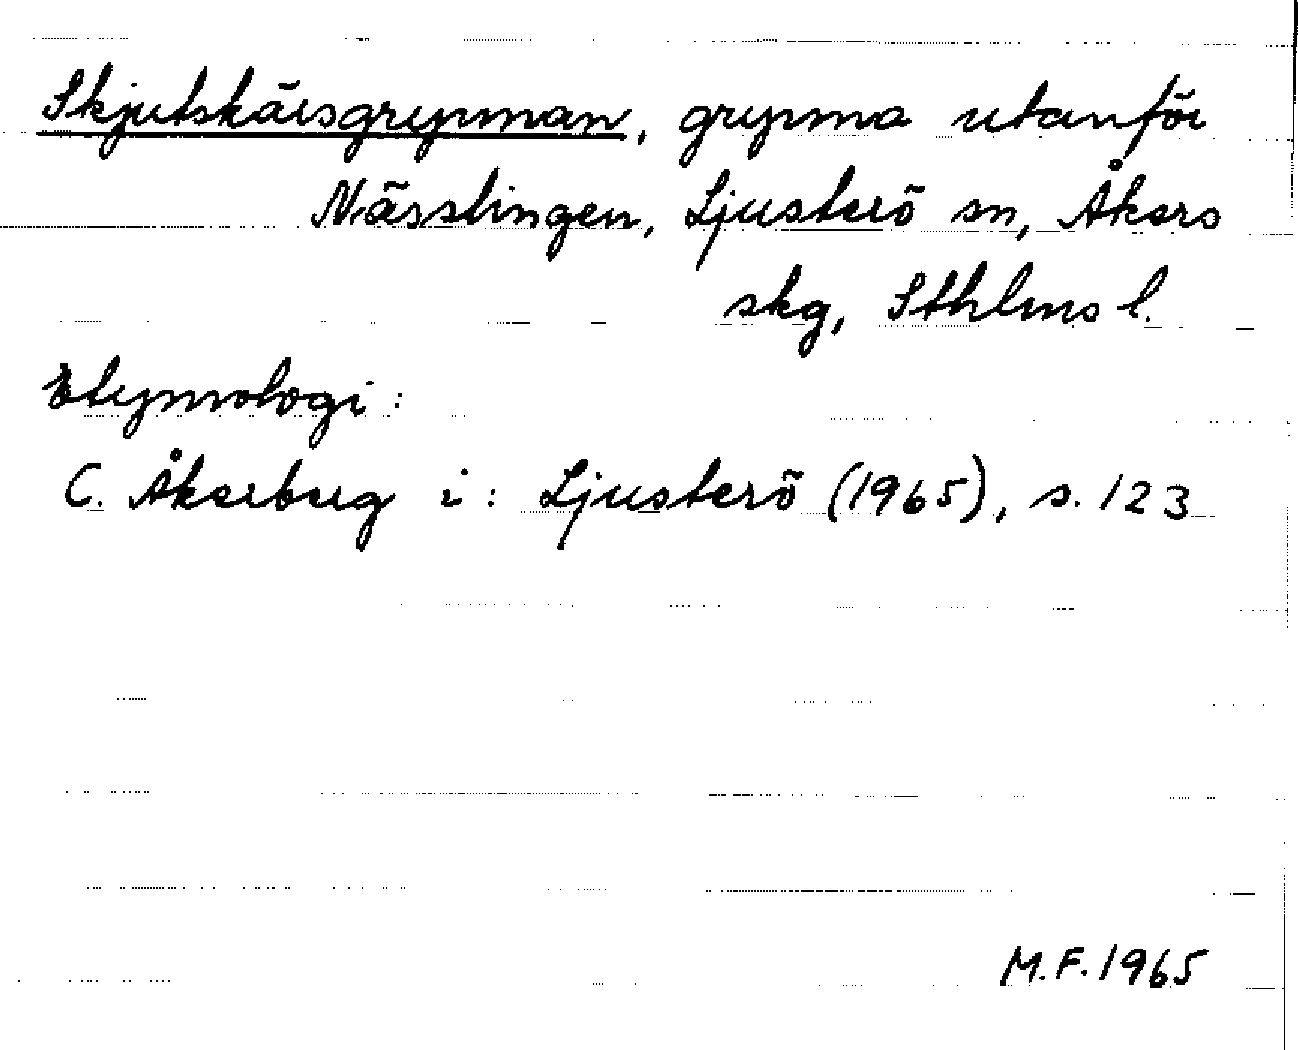 Skjutskärsgrynnan, grynna utanför
Nässlingen, Ljusterö sn, Åkers
skg, Sthlms l.
Etymologi:
C. Åkerberg i: Ljusterö (1965), s. 123
M.F. 1965